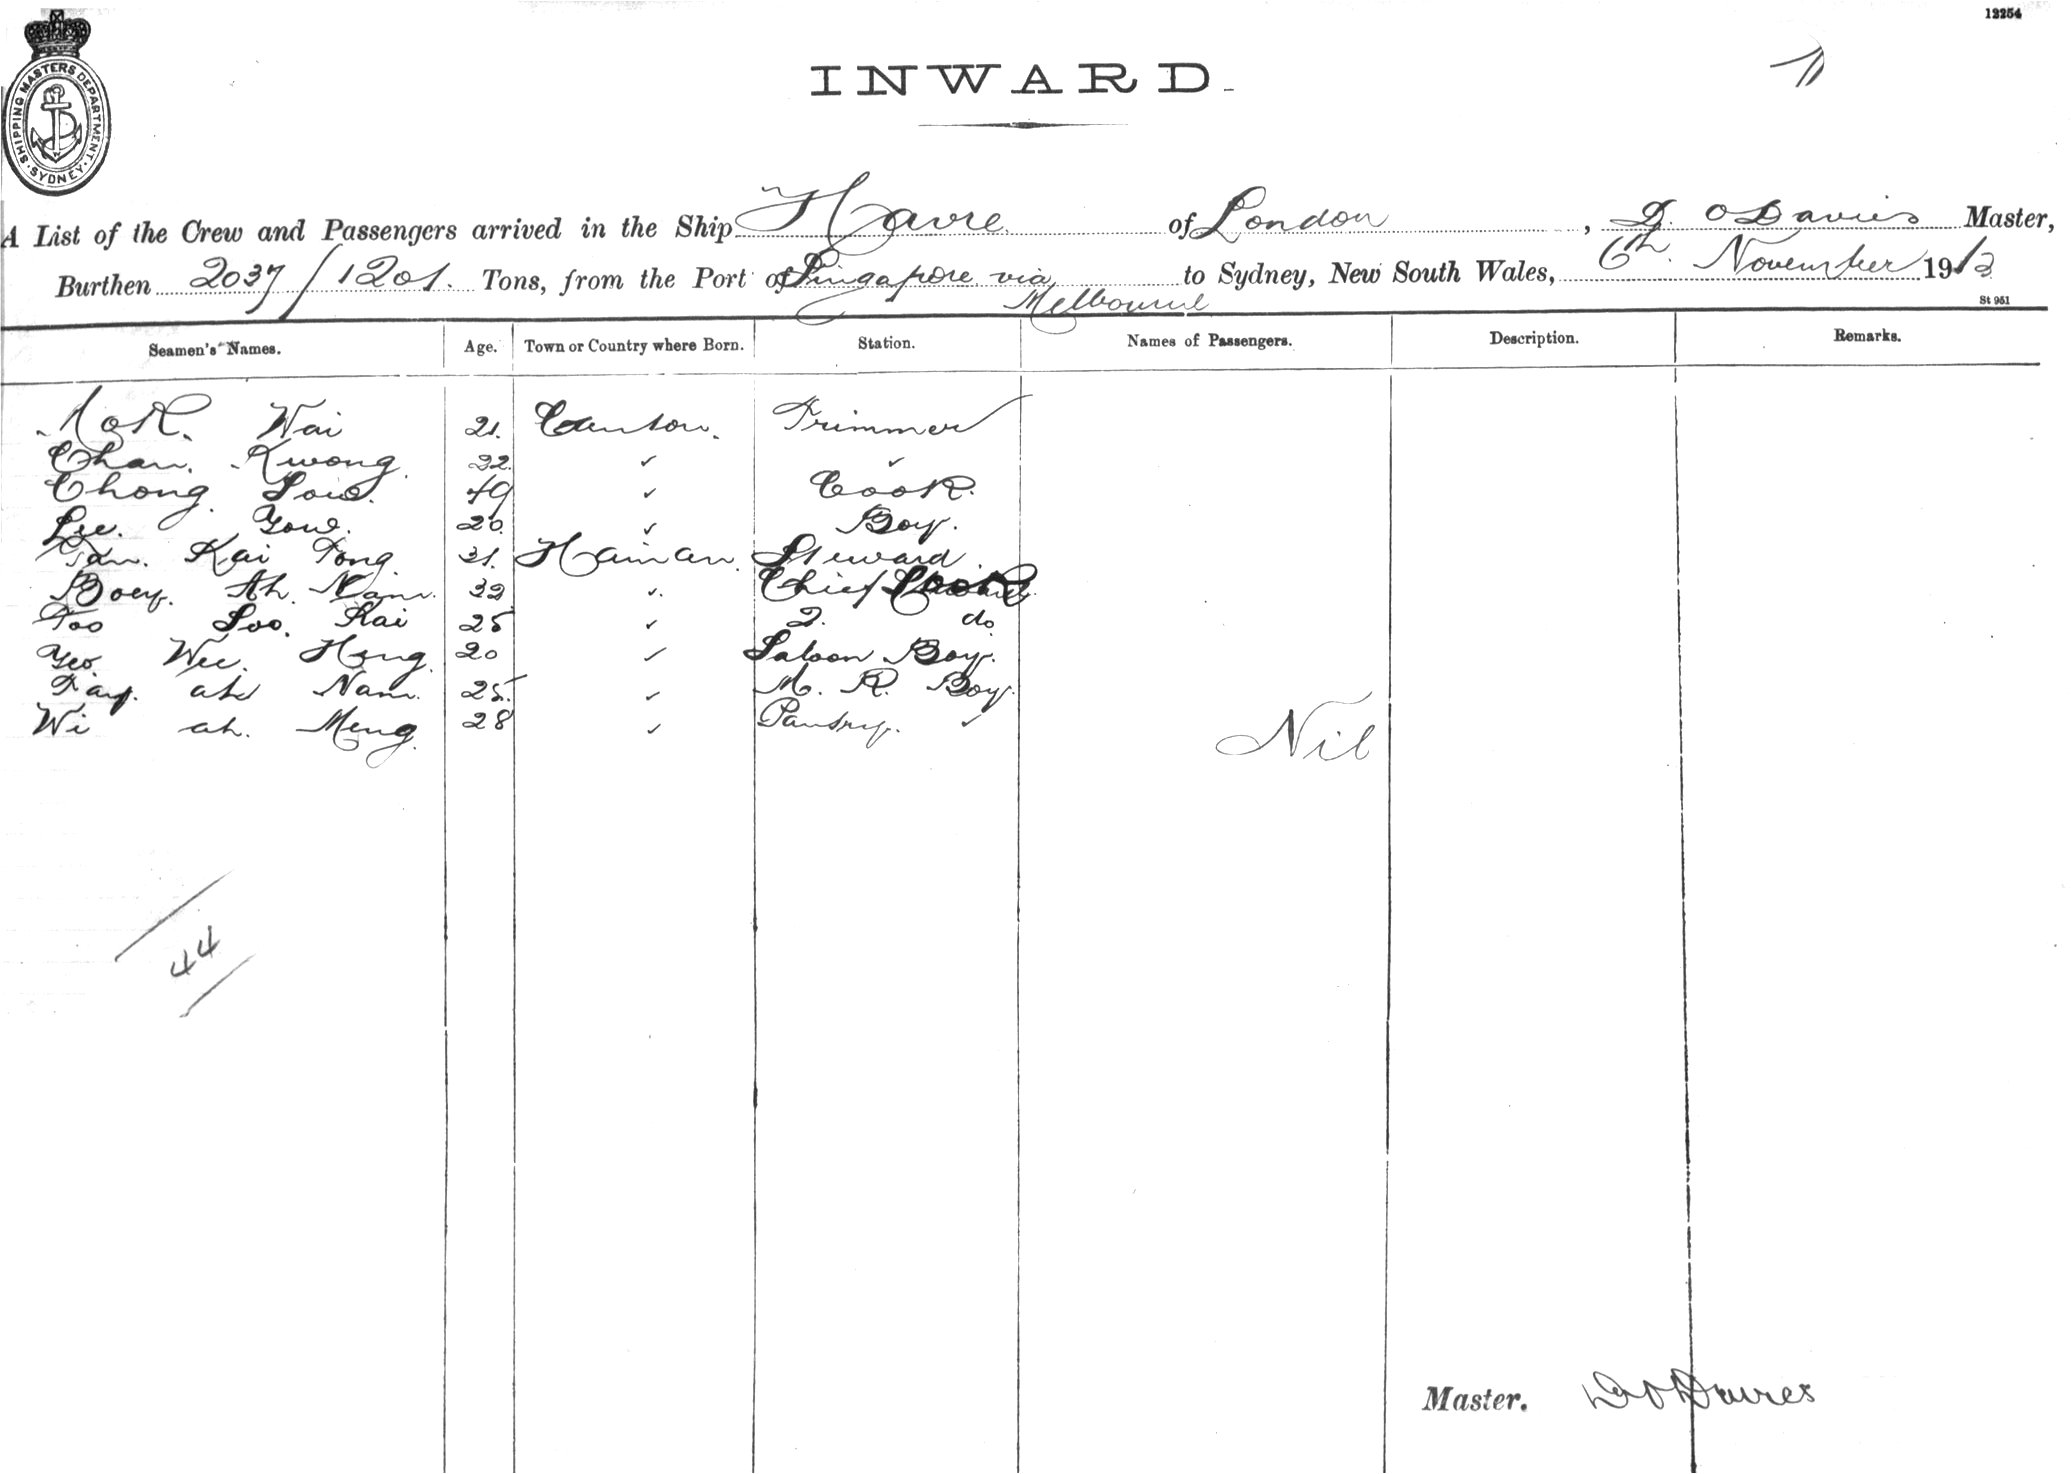 12254
SHIPPING MASTERS DEPARTMENT. SYDNEY.
INWARD.
A List of the Crew and Passengers arrived in the Ship Havre of London, D. O Davies Master,
Burthen 2037/1201. Tons, from the Port of Singapore via Melbourne to Sydney, New South Wales, 6th. November 1913
St 951
Seamen's Names. Age. Town or Country where Born. Station. Names of Passengers. Description. Remarks.
Mok. Wai 21. Canton. Trimmer
Chan. Kwong. 22. ✓ ✓
Chong 49 ✓ Cook.
Lee. 20. ✓ Boy.
Tan. Kai Tong. 31. Hainan. Steward.
Boey. Ah. Nam. 32 ✓. Chief Cook
Foo Soo. Kai 25 ✓ 2. do
Yeo. Wee. Heng. 20 ✓ Saloon Boy.
ah Nam. 25. ✓ M. R. Boy.
Wi ah. Meng. 28 ✓ Pantry. ✓
Nil
44
Master. D O Davies